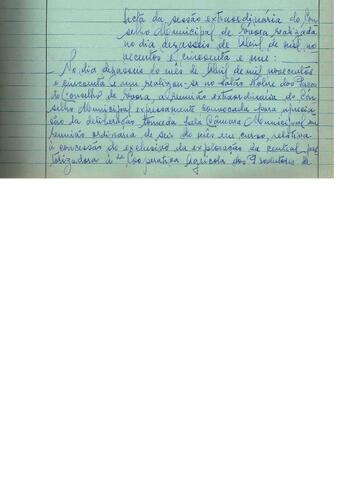 Acta da sessão extraordinária do Con
selho Municipal de realizada
no dia dezasseis de Abril de mil no
vecentos e cincoenta e um:
No dia dezasseis do mês de Abril de mil novecentos
e cincoenta e um realizou-se no salão Nobre dos Paços
do Concelho de a reunião extraordinaria do Con
selho Municipal expressamente convocada para aprecia
ção da deliberação tomada pela Câmara Municipal em
reunião ordinária de seis do mês em curso, relativa
à concessão do exclusivo da exploração da central pas
terizadora à Cooperativa Agrícola dos Produtores de